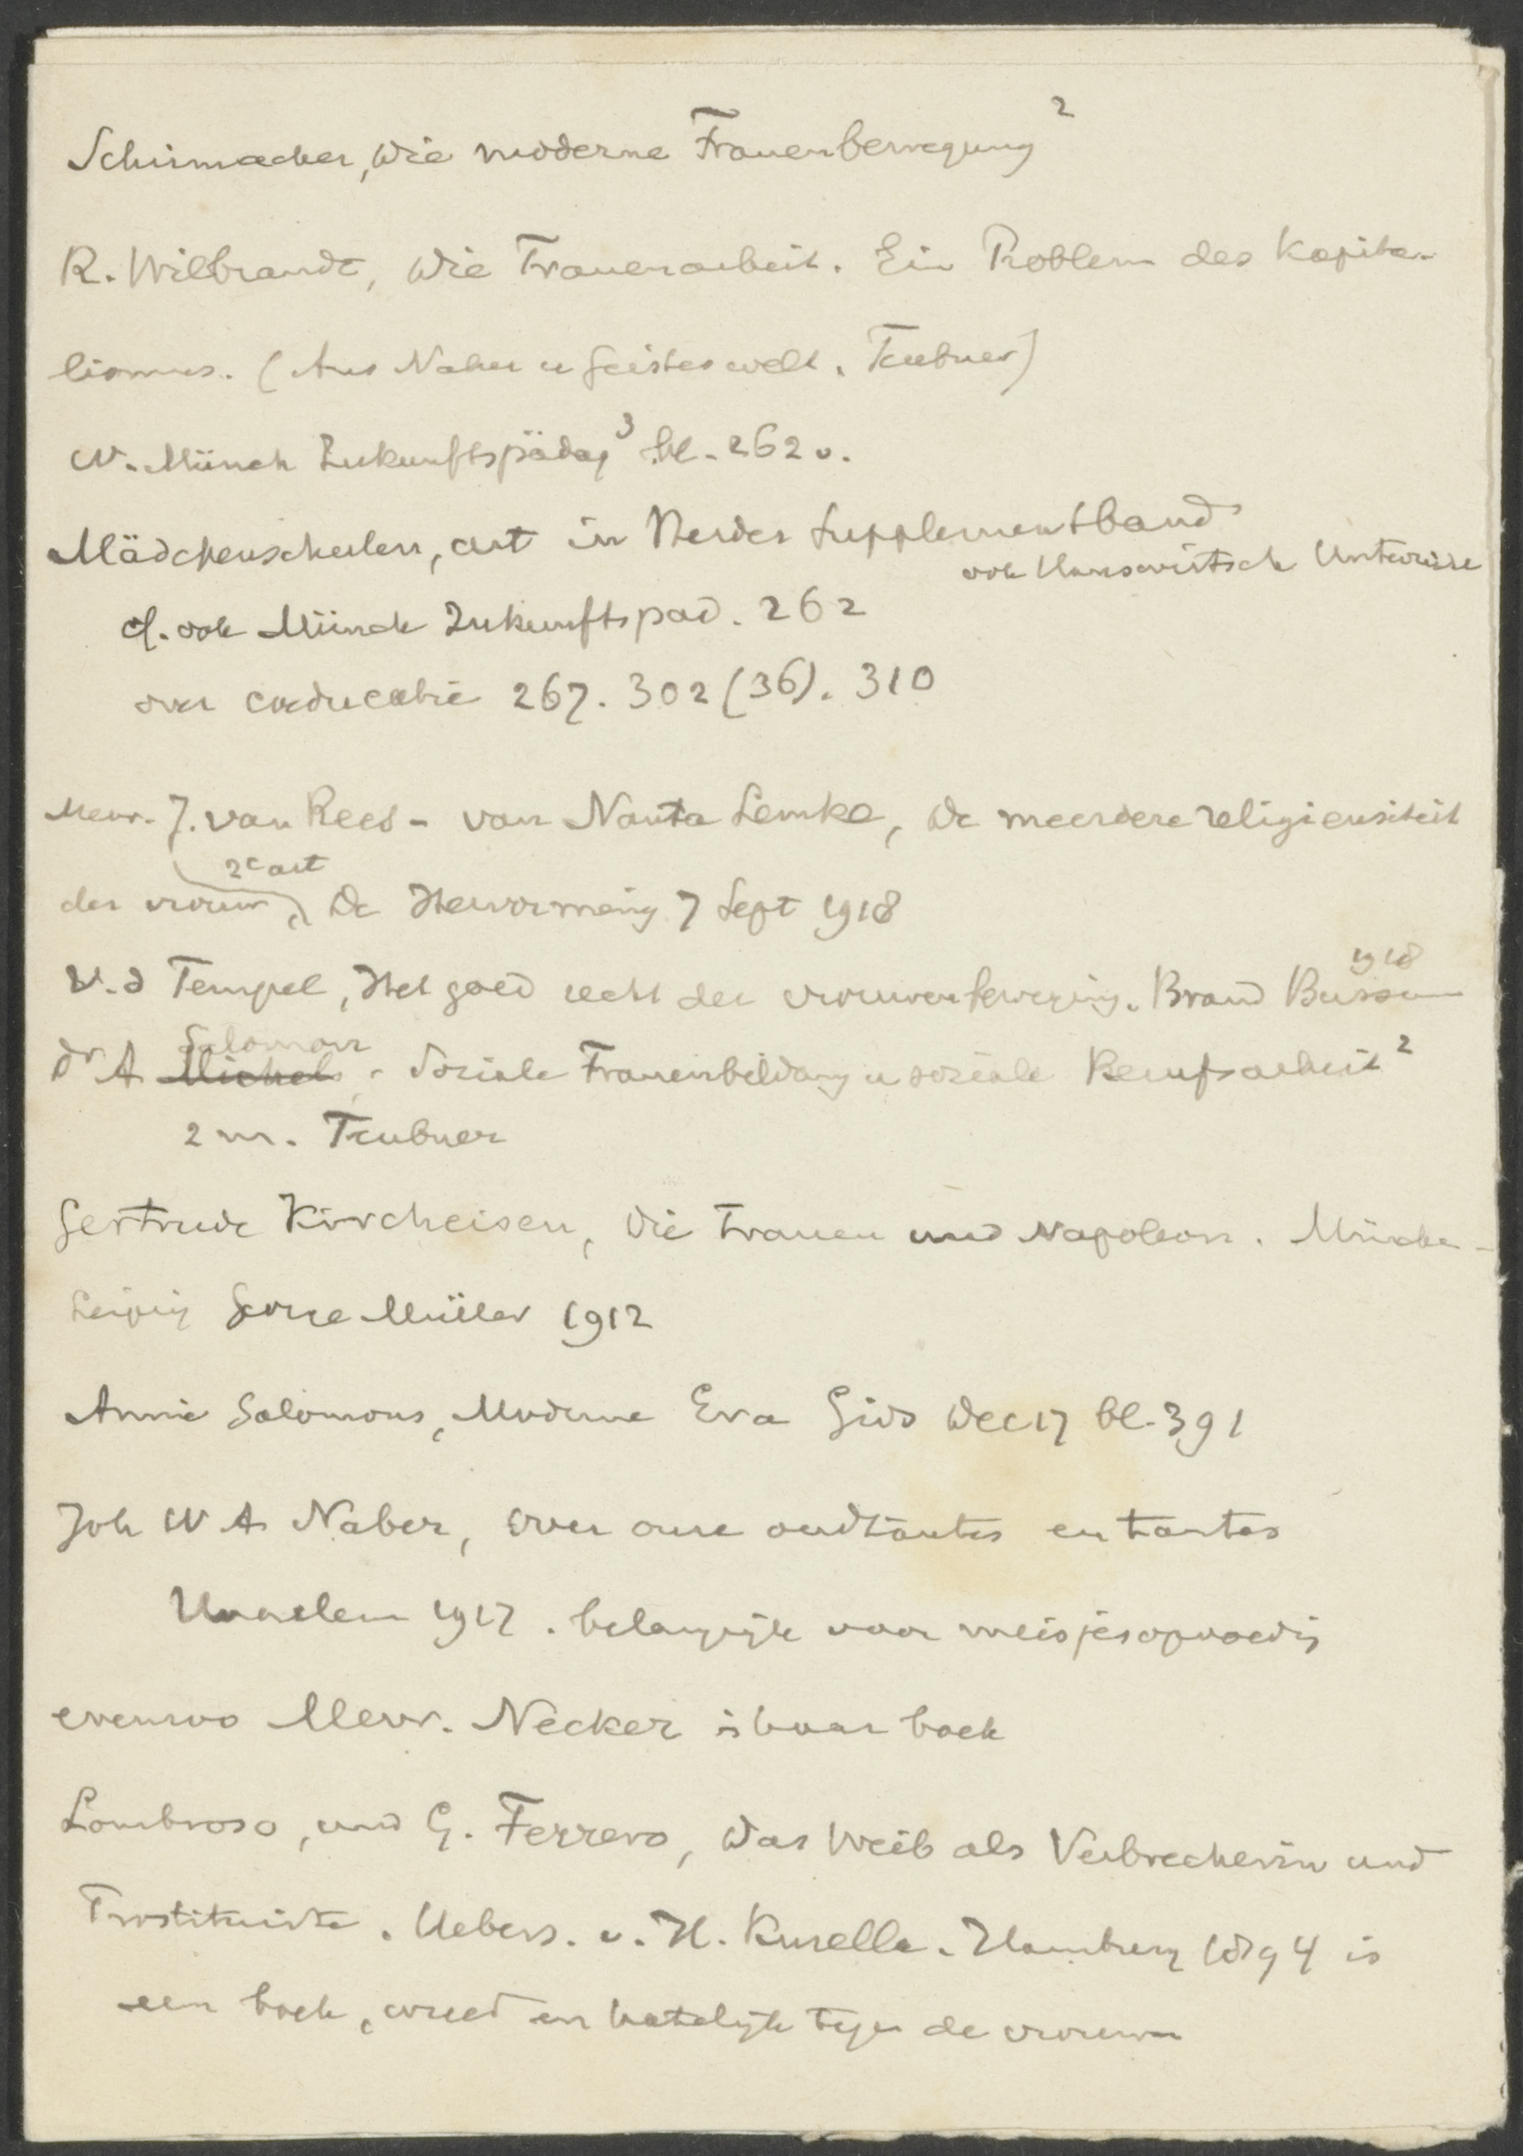 Schirmacher, Die moderne Frauenbewegung²
R. Wilbrandt, Die Frauenarbeit. Ein Problem des Kapita-
lismus. (Aus Natur u Geisteswelt. Teubner)
W. Münch Zukunftspädag³ bl. 262 v.
Mädchenschulen, art in Herder Supplementband
ook Hauswirtsch Unterricht
cf. ook Münch Zukunftspäd. 262
over coeducatie 267. 302 (36). 310
Mevr. J. van Rees - van Nauta Lemke, De meerdere religieusiteit
2e art
der vrouw, De Hervorming 7 Sept 1918
1918
V. d Tempel, Het goed recht der vrouwenbeweging. Brand Bussum
Salomon
Dr A Michels, Soziale Frauenbildung u soziale Berufsarbeit²
2 m. Teubner
Gertrude Kircheisen, Die Frauen und Napoleon. München-
Leipzig Georg Müller 1912
Annie Salomons, Moderne Eva Gids Dec 17 bl. 391
Joh W A Naber, Over onze oudtantes en tantes
Haarlem 1917. belangrijk voor meisjesopvoedig
evenzoo Mevr. Necker is haar boek
Lombroso, und G. Ferrero, Das Weib als Verbrecherin und
Prostituirte. Uebers. v. H. Kurella. Hamburg 1894 is
een boek, wreed en hatelijk tegen de vrouwen